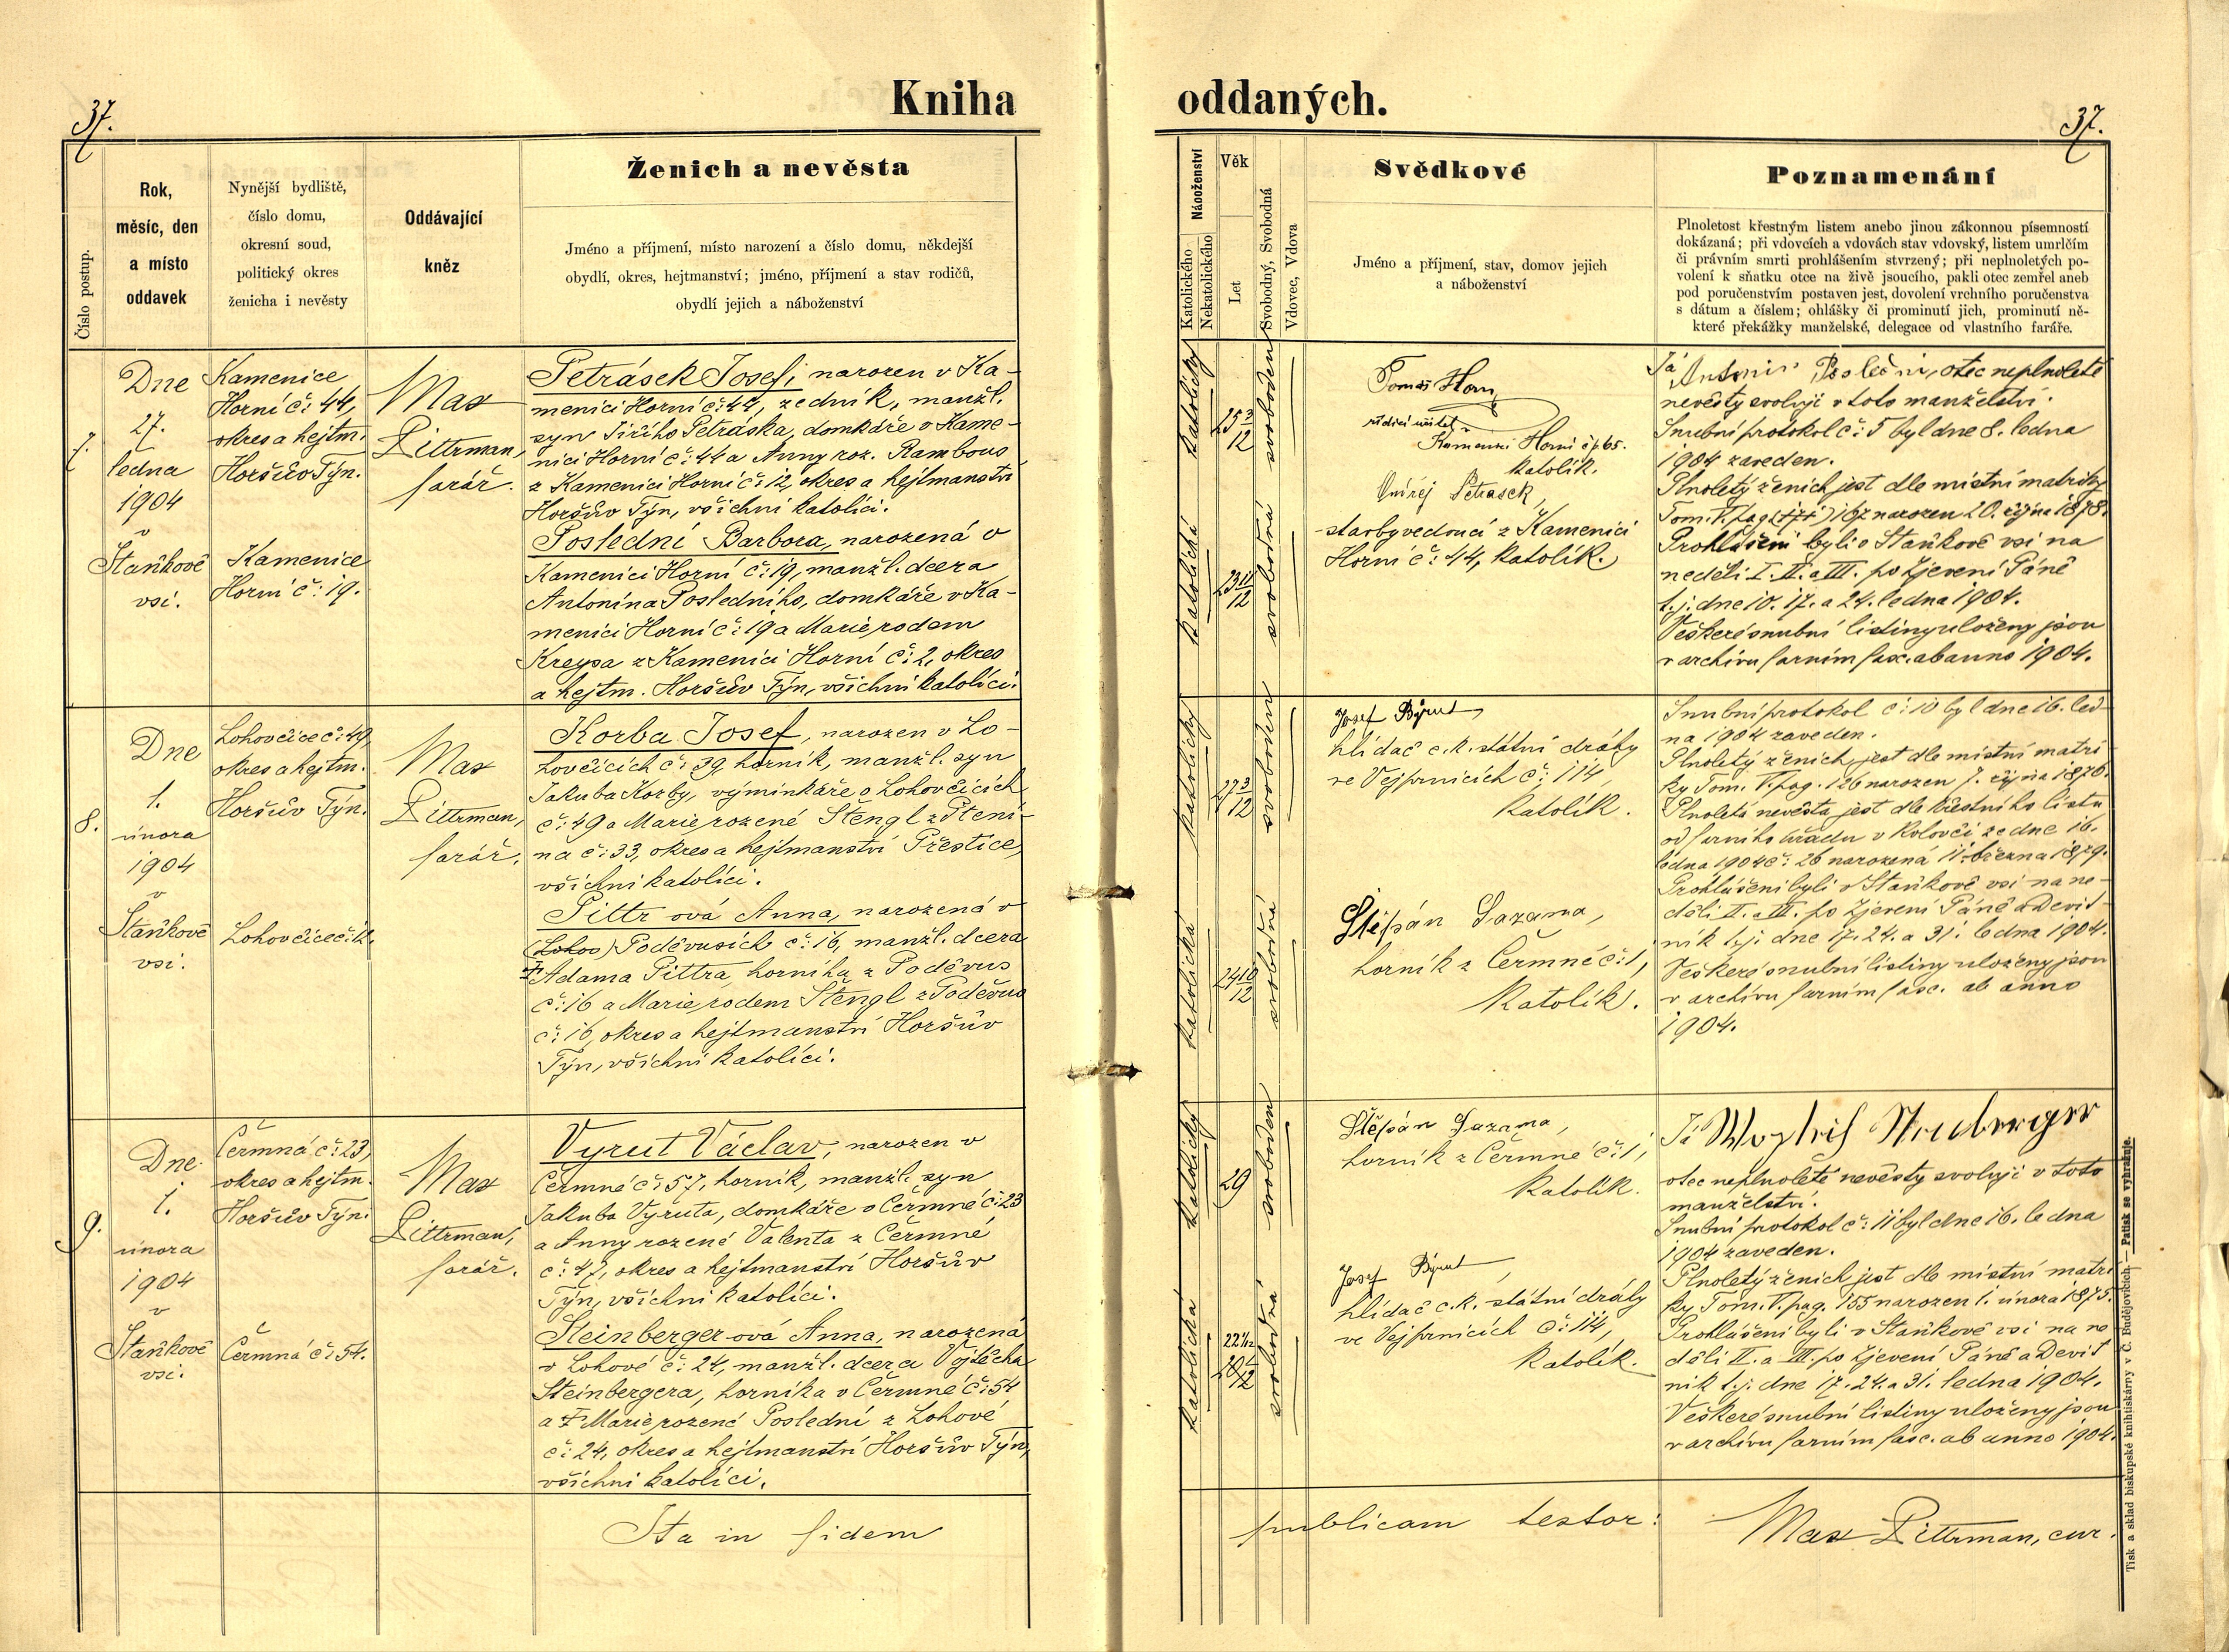 Kniha oddaných.
37.
37.
Číslo postup.
Rok,
měsíc, den
a místo
oddavek
Nynější bydliště,
číslo domu,
okresní soud,
politický okres
ženicha i nevěsty
Oddávající
kněz
Ženich a nevěsta
Jméno a příjmení, místo narození a číslo domu, někdejší
obydlí, okres, hejtmanství; jméno, příjmení a stav rodičů,
obydlí jejich a náboženství
Náboženství
Katolického
Nekatolického
Věk
Let
Svobodný, Svobodná
Vdovec, Vdova
Svědkové
Jméno a příjmení, stav, domov jejich
a náboženství
Poznamenání
Plnoletost křestným listem anebo jinou zákonnou písemností
dokázaná; při vdovcích a vdovách stav vdovský, listem umrlčím
či právním smrti prohlášením stvrzený; při neplnoletých po-
volení k sňatku otce na živě jsoucího, pakli otec zemřel aneb
pod poručenstvím postaven jest, dovolení vrchního poručenstva
s dátum a číslem; ohlášky či prominutí jich, prominutí ně-
které překážky manželské, delegace od vlastního faráře.
7.
Dne
27.
ledna
1904
v
Staňkově
vsi.
Kamenice
Horní č: 44,
okres a hejtm.
Horšův Týn.
Kamenice
Horní č: 19.
Max
Pittrman,
farář.
Petrásek Josef, narozen v Ka-
menici Horní č: 44, zedník, manžl.
syn Jiřího Petráska, domkáře v Kame-
nici Horní č: 44 a Anny roz. Rambous
z Kamenici Horní č: 12, okres a hejtmanství
Horšův Týn, všichni katolíci.
Poslední Barbora, narozená v
Kamenici Horní č: 19, manžl. dcera
Antonína Posledního, domkáře v Ka-
menici Horní č: 19 a Marie, rodem
Kreysa z Kamenici Horní č: 2, okres
a hejtm. Horšův Týn, všichni katolíci.
katolický
25 3/12
svoboden
katolická
23 11/12
svobodná
Tomáš Horn
řídící učitel v
Kamenici Horní č p. 65.
katolík.
Ondřej Petrasek,
stavbyvedoucí z Kamenici
Horní č: 44, katolík.
Já Antonin Poslední, otec neplnoleté
nevěsty svoluji v toto manželství.
Snubní protokol č: 5 byl dne 8. ledna
1904 zaveden.
Plnoletý ženich jest dle místní matriky
Tom. V. pag. 167 narozen 20. října 1878.
Prohlášeni byli v Staňkově vsi na
neděli I. II. a III. po Zjevení Páně
t. j. dne 10. 17. a 24. ledna 1904.
Veškeré snubní listiny uloženy jsou
v archivu farním fasc. ab anno 1904.
8.
Dne
1.
února
1904
v
Staňkově
vsi.
Lohovčice č: 49,
okres a hejtm.
Horšův Týn.
Lohovčice č: 12.
Max
Pittrman,
farář.
Korba Josef, narozen v Lo-
hovčicích č: 39, horník, manžl. syn
Jakuba Korby, výminkáře v Lohovčicích
č: 49 a Marie, rozené Štengl z Pteni-
na č: 33, okres a hejtmanství Přestice,
všichni katolíci.
Pittr ová Anna, narozená v
(Lohov) Poděvusích č: 16, manžl. dcera
† Adama Pittra, horníka z Poděvus
č: 16 a Marie, rodem Štengl z Poděvus
č: 16, okres a hejtmanství Horšův
Týn, všichni katolíci.
katolický
27 3/12
svoboden
katolická
24 10/12
svobodná
Josef Býrut,
hlídač c. k. státní dráhy
ve Vejprnicích č: 114,
katolík.
Štěpán Sazama,
horník z Čermné č: 1,
katolík.
Snubní protokol č: 10 byl dne 16. led-
na 1904 zaveden.
Plnoletý ženich jest dle místní matri-
ky Tom. V. pag. 126 narozen 7. října 1876.
Plnoletá nevěsta jest dle křestního listu
od farního úřadu v Kolovči ze dne 16.
ledna 1904 č: 26 narozená 11. března 1879.
Prohlášeni byli v Staňkově vsi na ne-
děli II. a III. po Zjevení Páně a Devít-
ník t. j. dne 17. 24. a 31. ledna 1904.
Veškeré snubní listiny uloženy jsou
v archivu farním fasc. ab anno
1904.
9.
Dne
1.
února
1904
v
Staňkově
vsi.
Čermná č: 23,
okres a hejtm.
Horšův Týn.
Čermná č: 54.
Max
Pittrman,
farář.
Vyrut Václav, narozen v
Čermné č: 57, horník, manžl. syn
Jakuba Vyruta, domkáře v Čermné č: 23
a Anny rozené Valenta z Čermné
č: 47, okres a hejtmanství Horšův
Týn, všichni katolíci.
Steinberger-ová Anna, narozená
v Lohově č: 24, manžl. dcera Vojtěcha
Steinbergera, horníka v Čermné č: 54
a † Marie, rozené Poslední z Lohové
č: 24, okres a hejtmanství Horšův Týn,
všichni katolíci.
katolický
29
svoboden
katolická
22 1/12
svobodná
Štěpán Sazama,
horník z Čermné č: 1,
katolík.
Josef Býrut,
hlídač c. k. státní dráhy
ve Vejprnicích č: 114,
katolík.
Já
otec neplnoleté nevěsty svoluji v toto
manželství.
Snubní protokol č: 11 byl dne 16. ledna
1904 zaveden.
Plnoletý ženich jest dle místní matri-
ky Tom. V. pag. 155 narozen 1. února 1875.
Prohlášeni byli v Staňkově vsi na ne-
děli II. a III. po Zjevení Páně a Devít
ník t. j. dne 17. 24. a 31. ledna 1904.
Veškeré snubní listiny uloženy jsou
v archivu farním fasc. ab anno 1904.
Ita in fidem publicam testor:
Max Pittrman, cur.
Tisk a sklad biskupské knihtiskárny v Č. Budějovicích. — Patisk se vyhražuje.